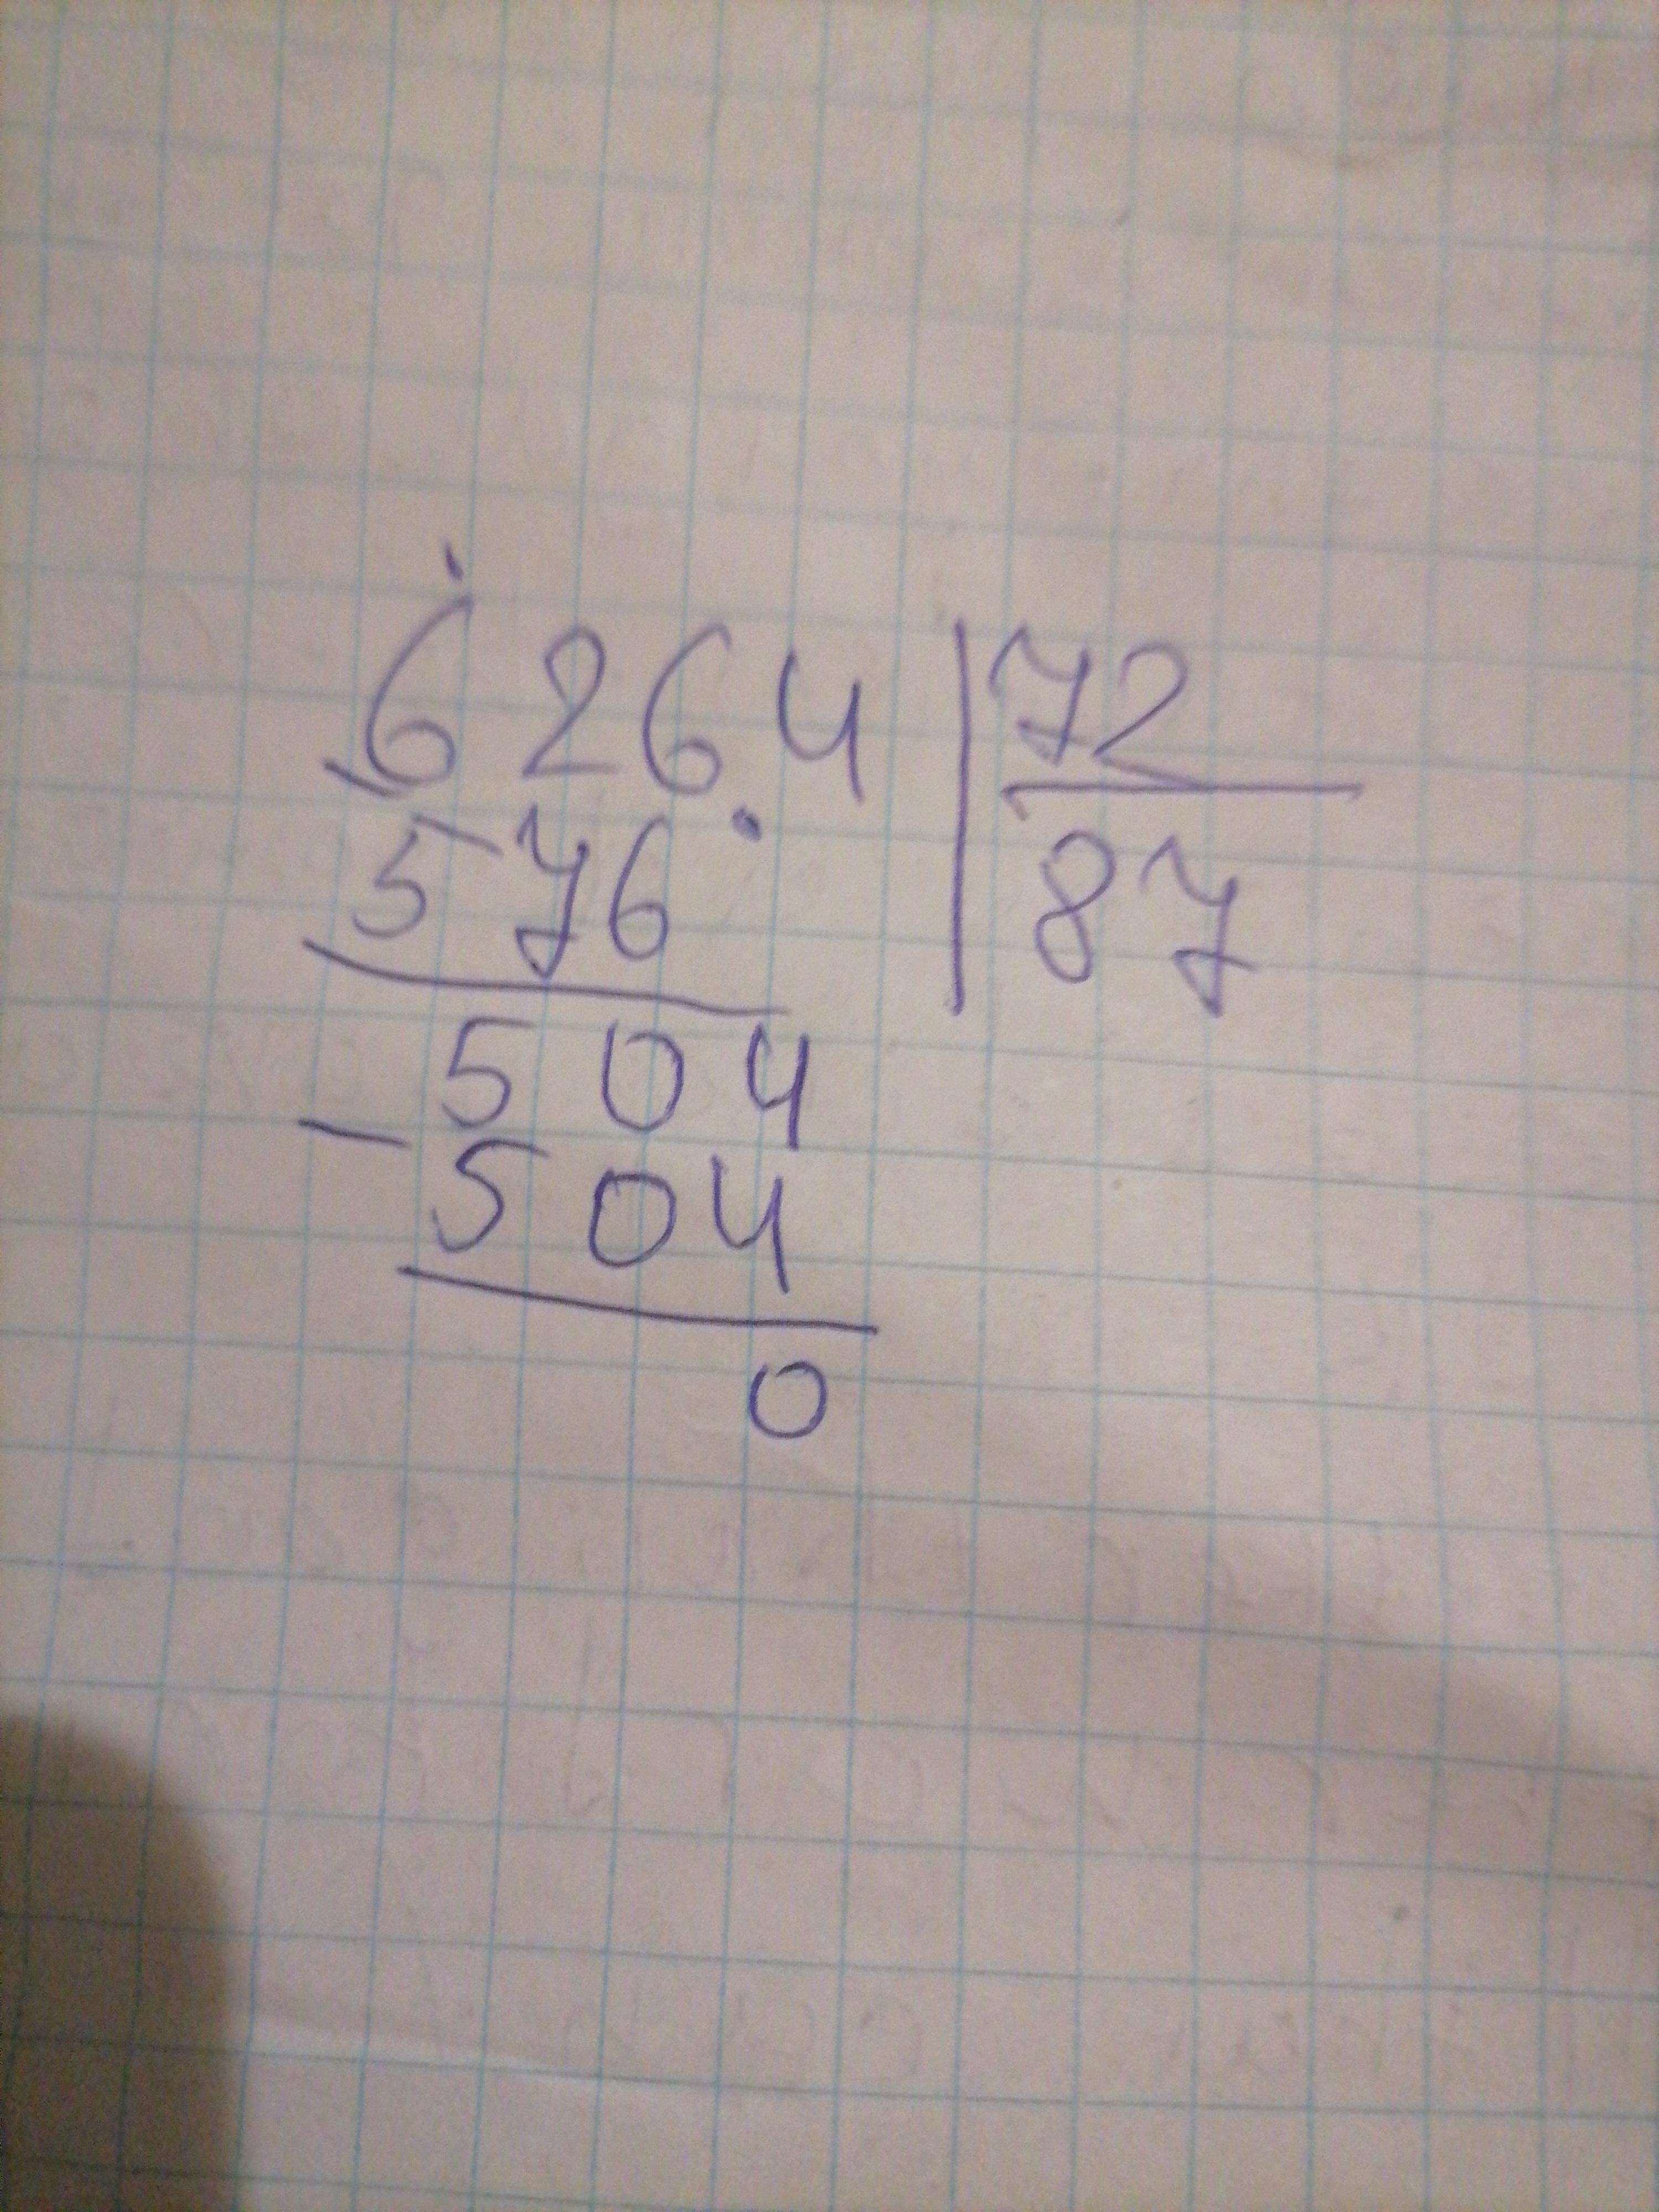 6264 | 72
576 | 87
504
- 504
0